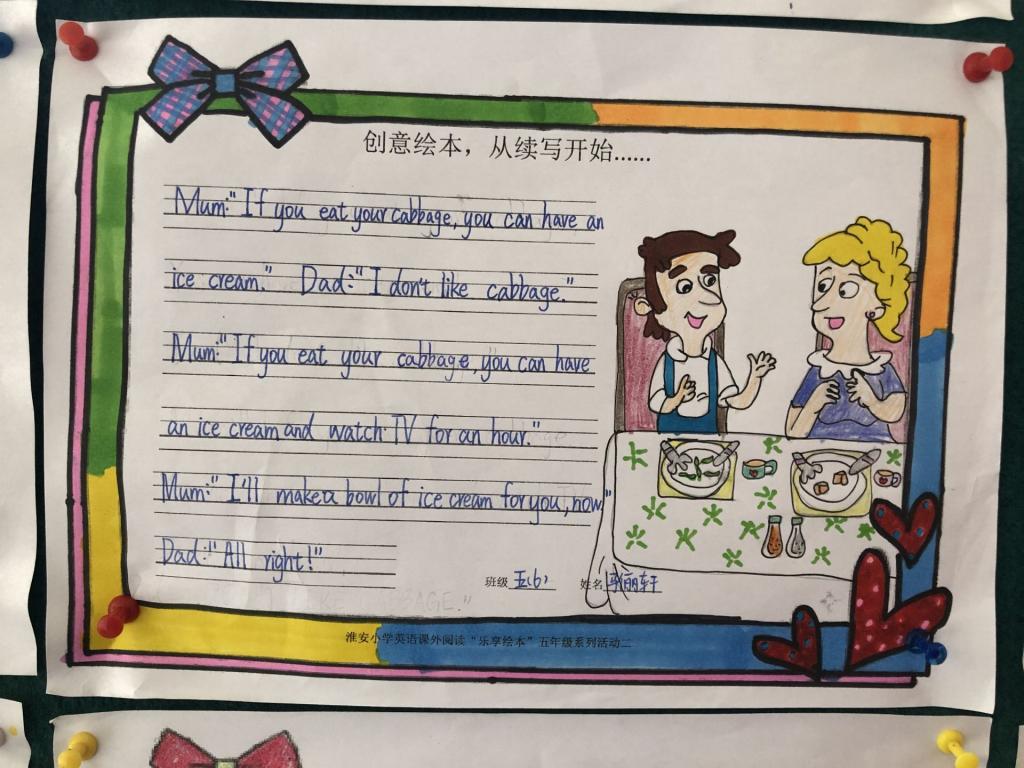 创意绘本，从续写开始......
Mum:"If you eat your cabbage, you can have an
ice cream." Dad:"I don't like cabbage."
Mum:"If you eat your cabbage, you can have
an ice cream and watch TV for an hour."
Mum:"I'll make a bowl of ice cream for you, now"
Dad:"All right!"
班级 五(6) 姓名 丽轩
淮安小学英语课外阅读“乐享绘本”五年级系列活动二